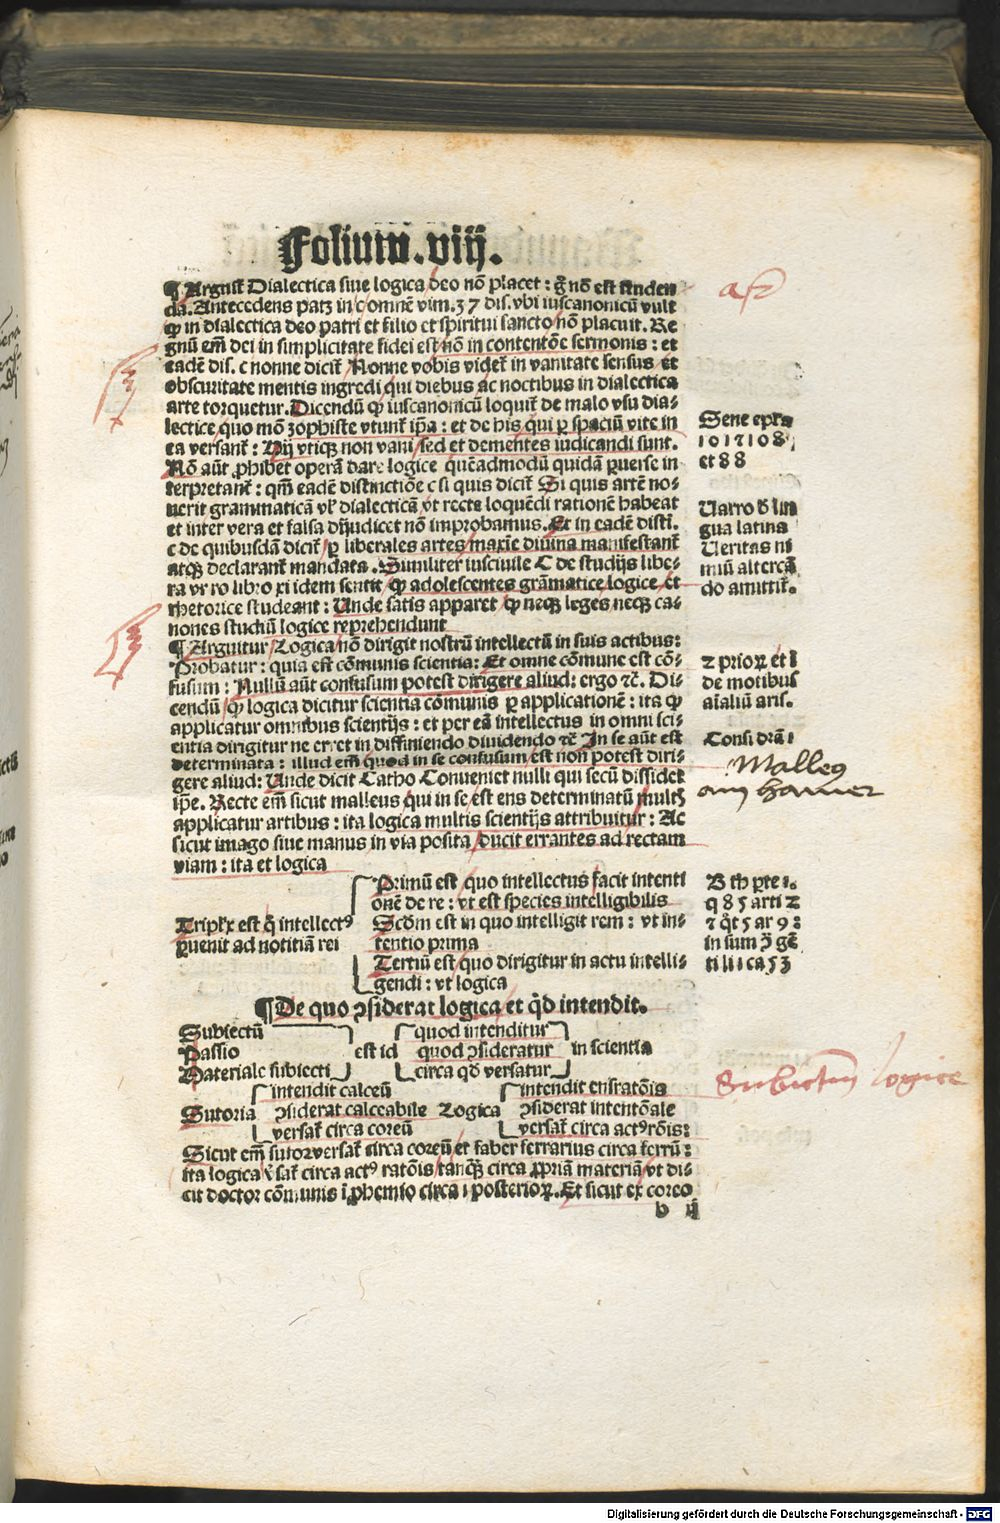 Folium.viij.
¶ Arguit̃ Dialectica siue logica deo nõ placet : g̃ nõ est studen
da. Antecedens patꝫ in c omnẽ vim.37 dis. vbi iuscanonicũ vult
ꝙ in dialectica deo patri et filio et spiritui sancto nõ placuit. Re
gnũ em̃ dei in simplicitate fidei est nõ in contentõe sermonis : et
eadẽ dis. c nonne dicit̃ Nonne vobis videt̃ in vanitate sensus et
obscuritate mentis ingredi qui diebus ac noctibus in dialectica
arte torquetur. Dicendũ ꝙ iuscanonicũ loquit̃ de malo vsu dia-
lectice quo mõ zophiste vtunt̃ ip̃a : et de his qui ꝑ spaciũ vite in
ea versant̃ : Hij vtiqꝫ non vani sed et dementes iudicandi sunt.
Nõ aũt ꝓhibet operã dare logice quẽadmodũ quidã ꝑuerse in
terpretant̃ : qm̃ eadẽ distinctiõe c si quis dicit̃ Si quis artẽ no-
uerit grammaticã vl̃ dialecticã vt recte loquẽdi rationẽ habeat
et inter vera et falsa dijudicet nõ improbamus. Et in eadẽ disti.
c de quibusdã dicit̃ ꝑ liberales artes maxĩe diuina manifestant̃
atqꝫ declarant̃ mandata. Similiter iusciuile C de studijs libe-
ra vr ro libro xi idem sentit ꝙ adolescentes grãmatice logice et
rhetorice studeant : Unde satis apparet ꝙ neqꝫ leges neqꝫ ca-
nones studiũ logice reprehendunt
¶ Arguitur Logica nõ dirigit nostrũ intellectũ in suis actibus:
Probatur : quia est cõmunis scientia: Et omne cõmune est cõ-
fusum : Nullũ aũt confusum potest dirigere aliud: ergo ⁊c̃. Di-
cendũ ꝙ logica dicitur scientia cõmunis ꝑ applicationẽ : ita ꝙ
applicatur omnibus scientijs : et per eã intellectus in omni sci-
entia dirigitur ne erret in diffiniendo diuidendo ⁊c̃ In se aũt est
determinata : illud em̃ quod in se confusum est non potest diri-
gere aliud: Unde dicit Catho Conueniet nulli qui secũ dissidet
ip̃e. Recte em̃ sicut malleus qui in se est ens determinatũ mult̃
applicatur artibus : ita logica multis scientijs attribuitur : Ac
sicut imago siue manus in via posita ducit errantes ad rectam
viam : ita et logica
Triplex est q̃ intellectꝰ
ꝑuenit ad notitiã rei
Primũ est quo intellectus facit intenti
onẽ de re : vt est species intelligibilis
Scðm est in quo intelligit rem : vt in-
tentio prima
Tertiũ est quo dirigitur in actu intelli-
gendi : vt logica
¶ De quo ꝯsiderat logica et q̃d intendit.
Subiectũ quod intenditur
Passio est id quod ꝯsideratur in scientia
Materiale subiecti circa qð versatur
intendit calceũ intendit ensratõis
Sutoria ꝯsiderat calceabile Logica ꝯsiderat intentõale
versat̃ circa coreũ versat̃ circa actꝰrõis:
Sicut em̃ sutorversat̃ circa coreũ et faber ferrarius circa ferrũ :
ita logica v̾sat̃ circa actꝰ ratõis tanqꝫ̃ circa ꝓpriã materiã vt di-
cit doctor cõmunis i ꝓhemio circa 1 posterioꝝ. Et sicut ex coreo
b ij
Sene epl̃a
10 17 108
et 88
Varro ð lin
gua latina
Veritas ni
miũ altercã
do amittit̃.
2 prioꝝ et l
de motibus
aĩaliũ aris.
Consi drã 1
Malleꝰ
am hamer
B th̃ ꝑte 1.
q 85 arti 2
⁊ q̃t 5 ar 9 :
in sum ꝯ̃ gẽ
ti li 1 ca 53
Subiectum logice